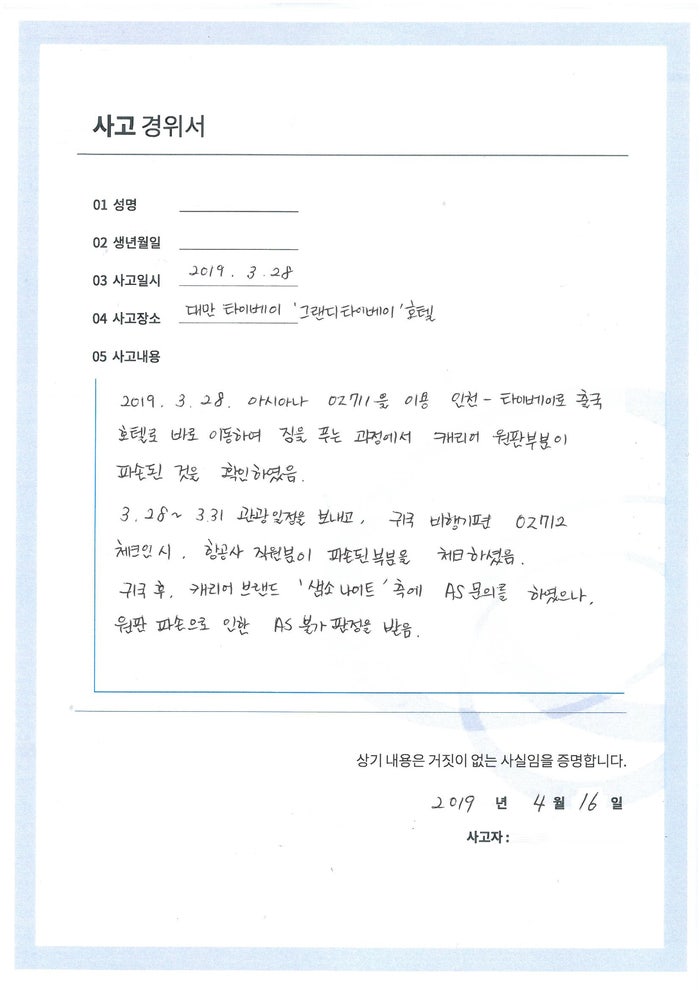 사고 경위서
01 성명
02 생년월일
03 사고일시 2019. 3. 28
04 사고장소 대만 타이베이 '그랜디타이베이' 호텔
05 사고내용
2019. 3. 28. 아시아나 OZ711을 이용 인천 - 타이베이로 출국
호텔로 바로 이동하여 짐을 푸는 과정에서 캐리어 원판부분이
파손된 것을 확인하였음.
3. 28 ~ 3.31 관광일정을 보내고, 귀국 비행기편 OZ712
체크인 시, 항공사 직원분이 파손된 부분을 체크하셨음.
귀국 후, 캐리어 브랜드 '샘소나이트' 측에 AS 문의를 하였으나,
원판 파손으로 인한 AS 불가 판정을 받음.
상기 내용은 거짓이 없는 사실임을 증명합니다.
2019 년 4 월 16 일
사고자 :